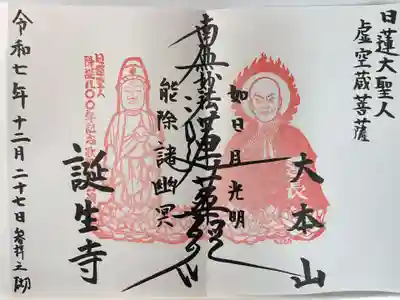 日蓮大聖人
虚空蔵菩薩
大本山
如日月光明
南無妙法蓮華経
能除諸幽冥
日蓮聖人
降誕八〇〇年記念
誕生寺
令和七年十二月二十七日